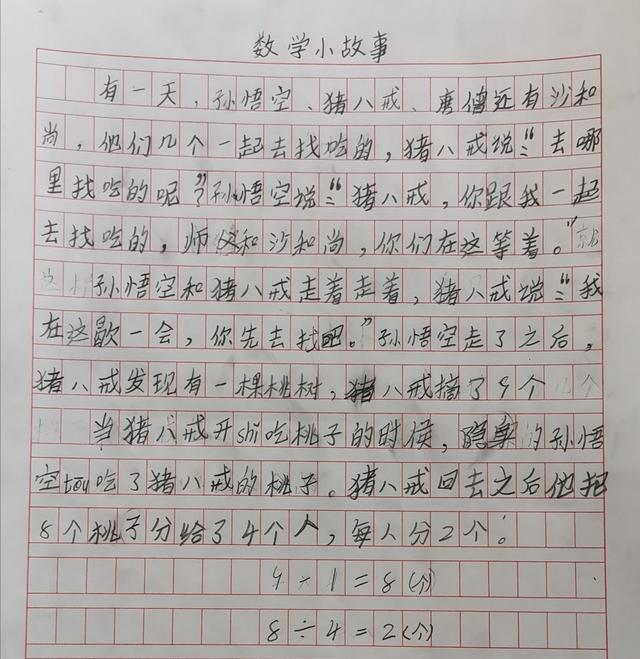 数学小故事
有一天，孙悟空、猪八戒、唐僧还有沙和
尚，他们几个一起去找吃的，猪八戒说：“去哪
里找吃的呢”？孙悟空说：“猪八戒，你跟我一起
去找吃的，师父和沙和尚，你们在这等着。”
孙悟空和猪八戒走着走着，猪八戒说：“我
在这歇一会，你先去找吧。”孙悟空走了之后，
猪八戒发现有一棵桃树，猪八戒摘了9个
当猪八戒开shi吃桃子的时候，隐身的孙悟
空tou吃了猪八戒的桃子。猪八戒回去之后他把
8个桃子分给了4个人，每人分2个。
9-1=8(个)
8÷4=2(个)